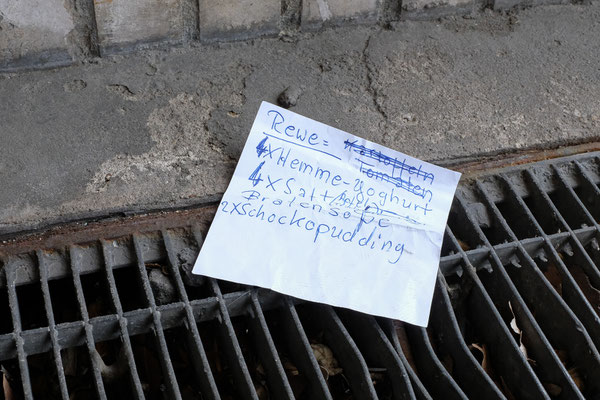 Rewe= Kartoffeln
Tomaten
4xHemme-Yoghurt
4xSaft
Bratensoße
2xSchockopudding